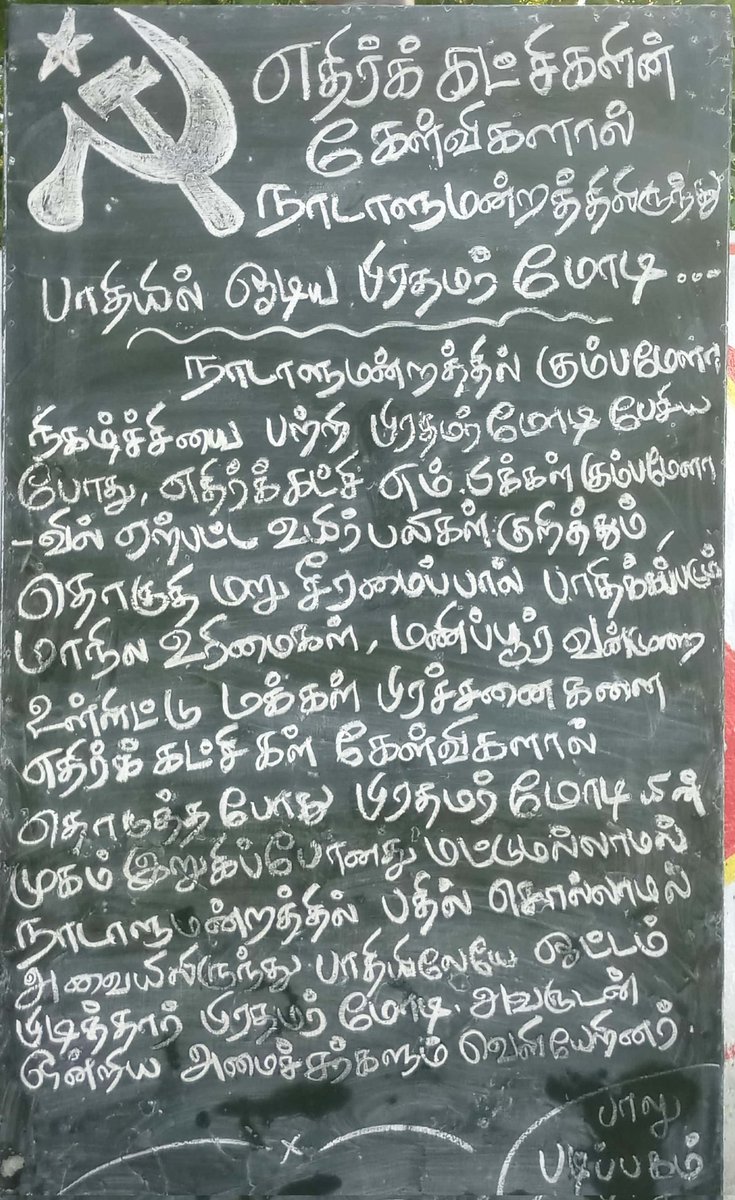 எதிர்க் கட்சிகளின்
கேள்விகளால்
நாடாளுமன்றத்திலிருந்து
பாதியில் ஓடிய பிரதமர் மோடி...
நாடாளுமன்றத்தில் கும்பமேளா
நிகழ்ச்சியை பற்றி பிரதமர் மோடி பேசிய
போது, எதிர்க்கட்சி எம்.பிக்கள் கும்பமேளா
-வில் ஏற்பட்ட உயிர்பலிகள் குறித்தும்,
தொகுதி மறு சீரமைப்பால் பாதிக்கப்படும்
மாநில உரிமைகள், மணிப்பூர் வன்முறை
உள்ளிட்டு மக்கள் பிரச்சனைகளை
எதிர்க் கட்சிகள் கேள்விகளால்
தொடுத்த போது பிரதமர் மோடியின்
முகம் இறுகிப்போனது மட்டுமல்லாமல்
நாடாளுமன்றத்தில் பதில் சொல்லாமல்
அவையிலிருந்து பாதியிலேயே ஓட்டம்
பிடித்தார் பிரதமர் மோடி. அவருடன்
ஒன்றிய அமைச்சர்களும் வெளியேறினர்.
பாலு
படிப்பகம்